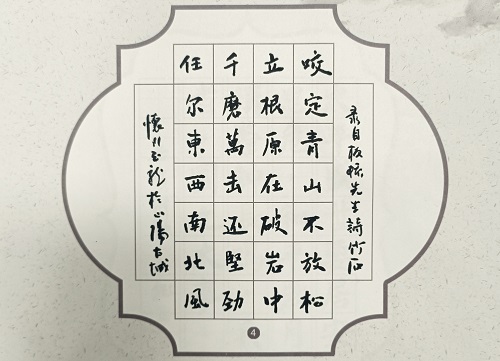 录自板桥先生詩竹石
咬定青山不放松
立根原在破岩中
千磨萬击还堅劲
任尔東西南北風
懷川玉龍於沁陽古城
4